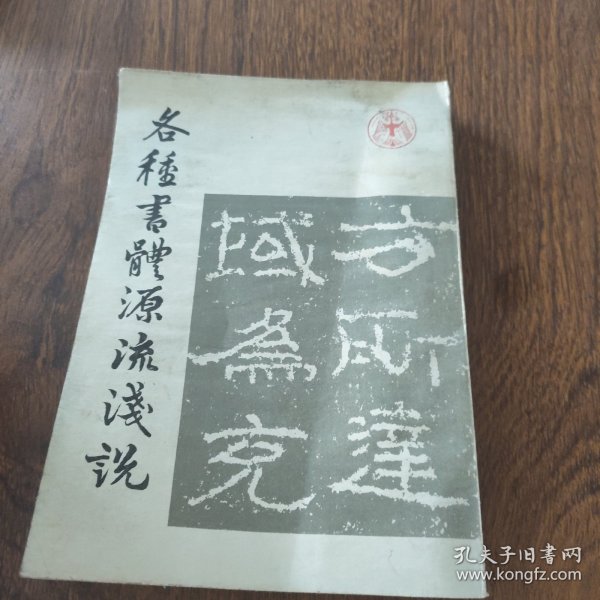 各種書體源流淺說
方所達
域為充
孔夫子旧書网
www.kongfz.com